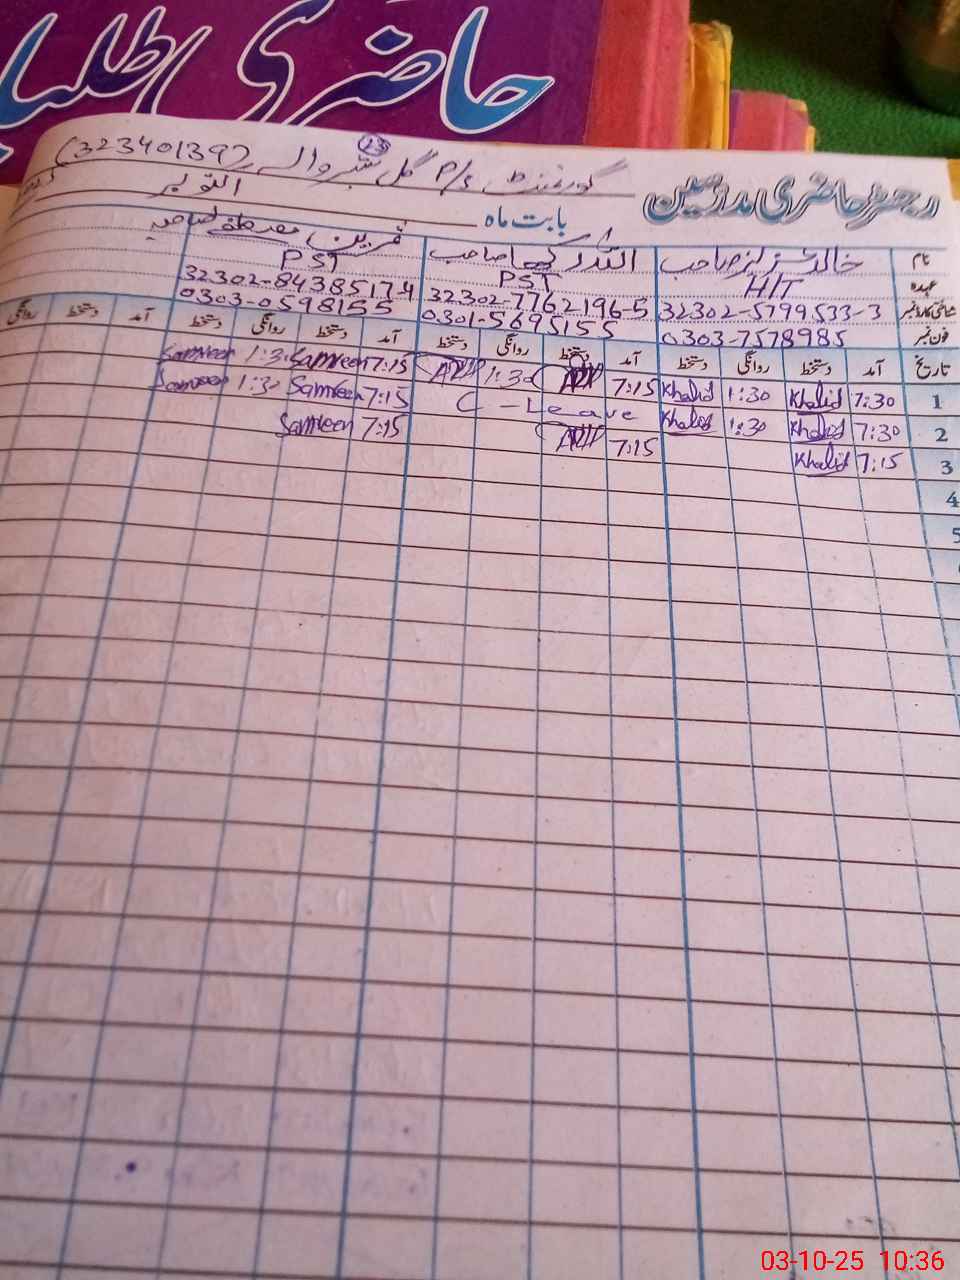 حاضری طلبا
گورنمنٹ P/S گل شیر والے (32340139)
23
رجسٹر حاضری مدرسین
بابت ماہ اکتوبر
نام خالد صاحب اللہ صاحب ثمرین مصطفیٰ صاحبہ
عہدہ H/T PST PST
شناختی کارڈ نمبر 32302-5799533-3 32302-7762196-5 32302-8438517-4
فون نمبر 0303-7578985 0301-5695155 0303-0598155
تاریخ آمد دستخط روانگی دستخط آمد دستخط روانگی دستخط آمد دستخط روانگی دستخط آمد دستخط روانگی
1 7:30 Khalid 1:30 Khalid 7:15 1:30 7:15 Samreen 1:30 Samreen
2 7:30 Khalid 1:30 Khalid C-Leave 7:15 Samreen 1:30 Samreen
3 7:15 Khalid 7:15 7:15 Samreen
4
5
03-10-25 10:36